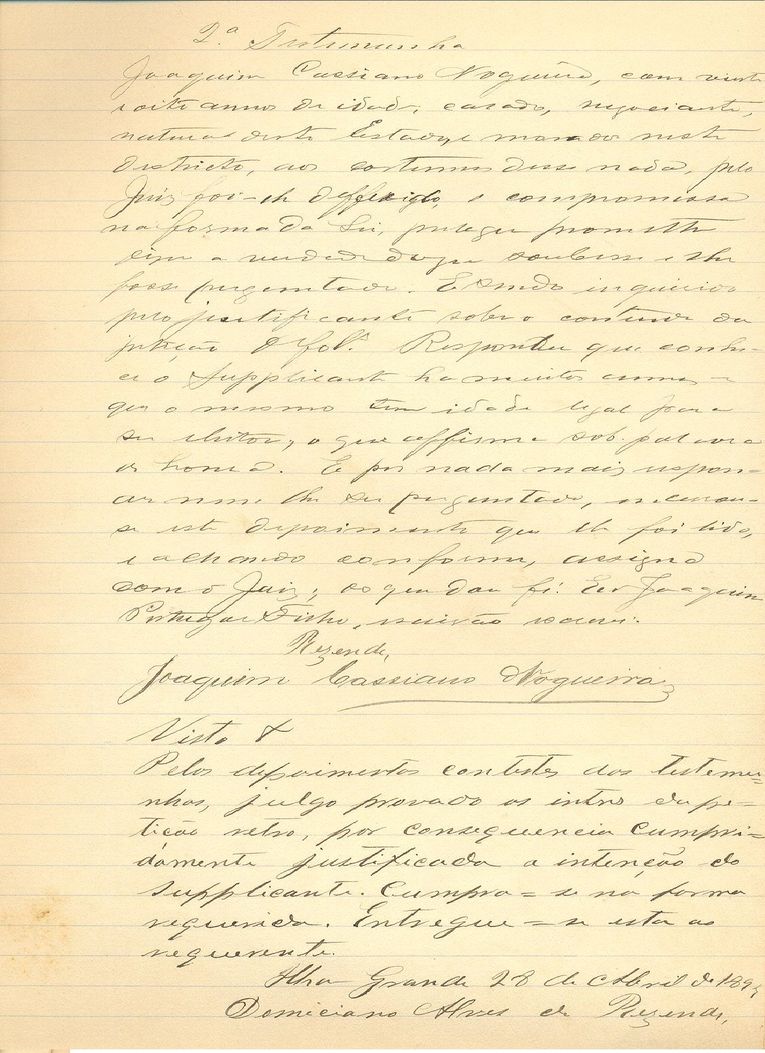 2.ª Testemunha
Joaquim Cassiano Nogueira, com vinte
e oito annos de idade, casado, negociante,
natural deste Estado e morador neste
districto, aos costumes disse nada, pelo
Juiz foi-lhe defferido, o compromisso
na forma da Lei, prometteu
dizer a verdade do que soubesse e lhe
fosse perguntado. E sendo inquirido
pelo justificante sobre o conteudo da
petição de fol.ª Respondeu que conhe-
ce o Supplicante ha muitos annos e
que o mesmo tem idade legal para
ser eleitor, o que affirma sob palavra
de honra. E por nada mais respon-
der nem lhe ser perguntado,
se este depoimento que lhe foi lido,
e achando conforme, assigna
com o Juiz; do que dou fé. Eu Joaquim
Portugal Filho, escrivão escrevi.
Rezende,
Joaquim Cassiano Nogueira
Visto &
Pelos depoimentos contestes das testemu-
nhas, julgo provado os da pe-
tição retro, por consequencia cumpri-
damente justificada a intenção do
supplicante. Cumpra=se na forma
requerida. Entregue=se esta ao
requerente.
Ilha Grande 28 de Abril de 189
Domiciano Alves de Rezende,